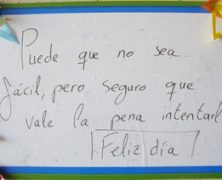 Puede que no sea
fácil, pero seguro que
vale la pena intentarl
Feliz día